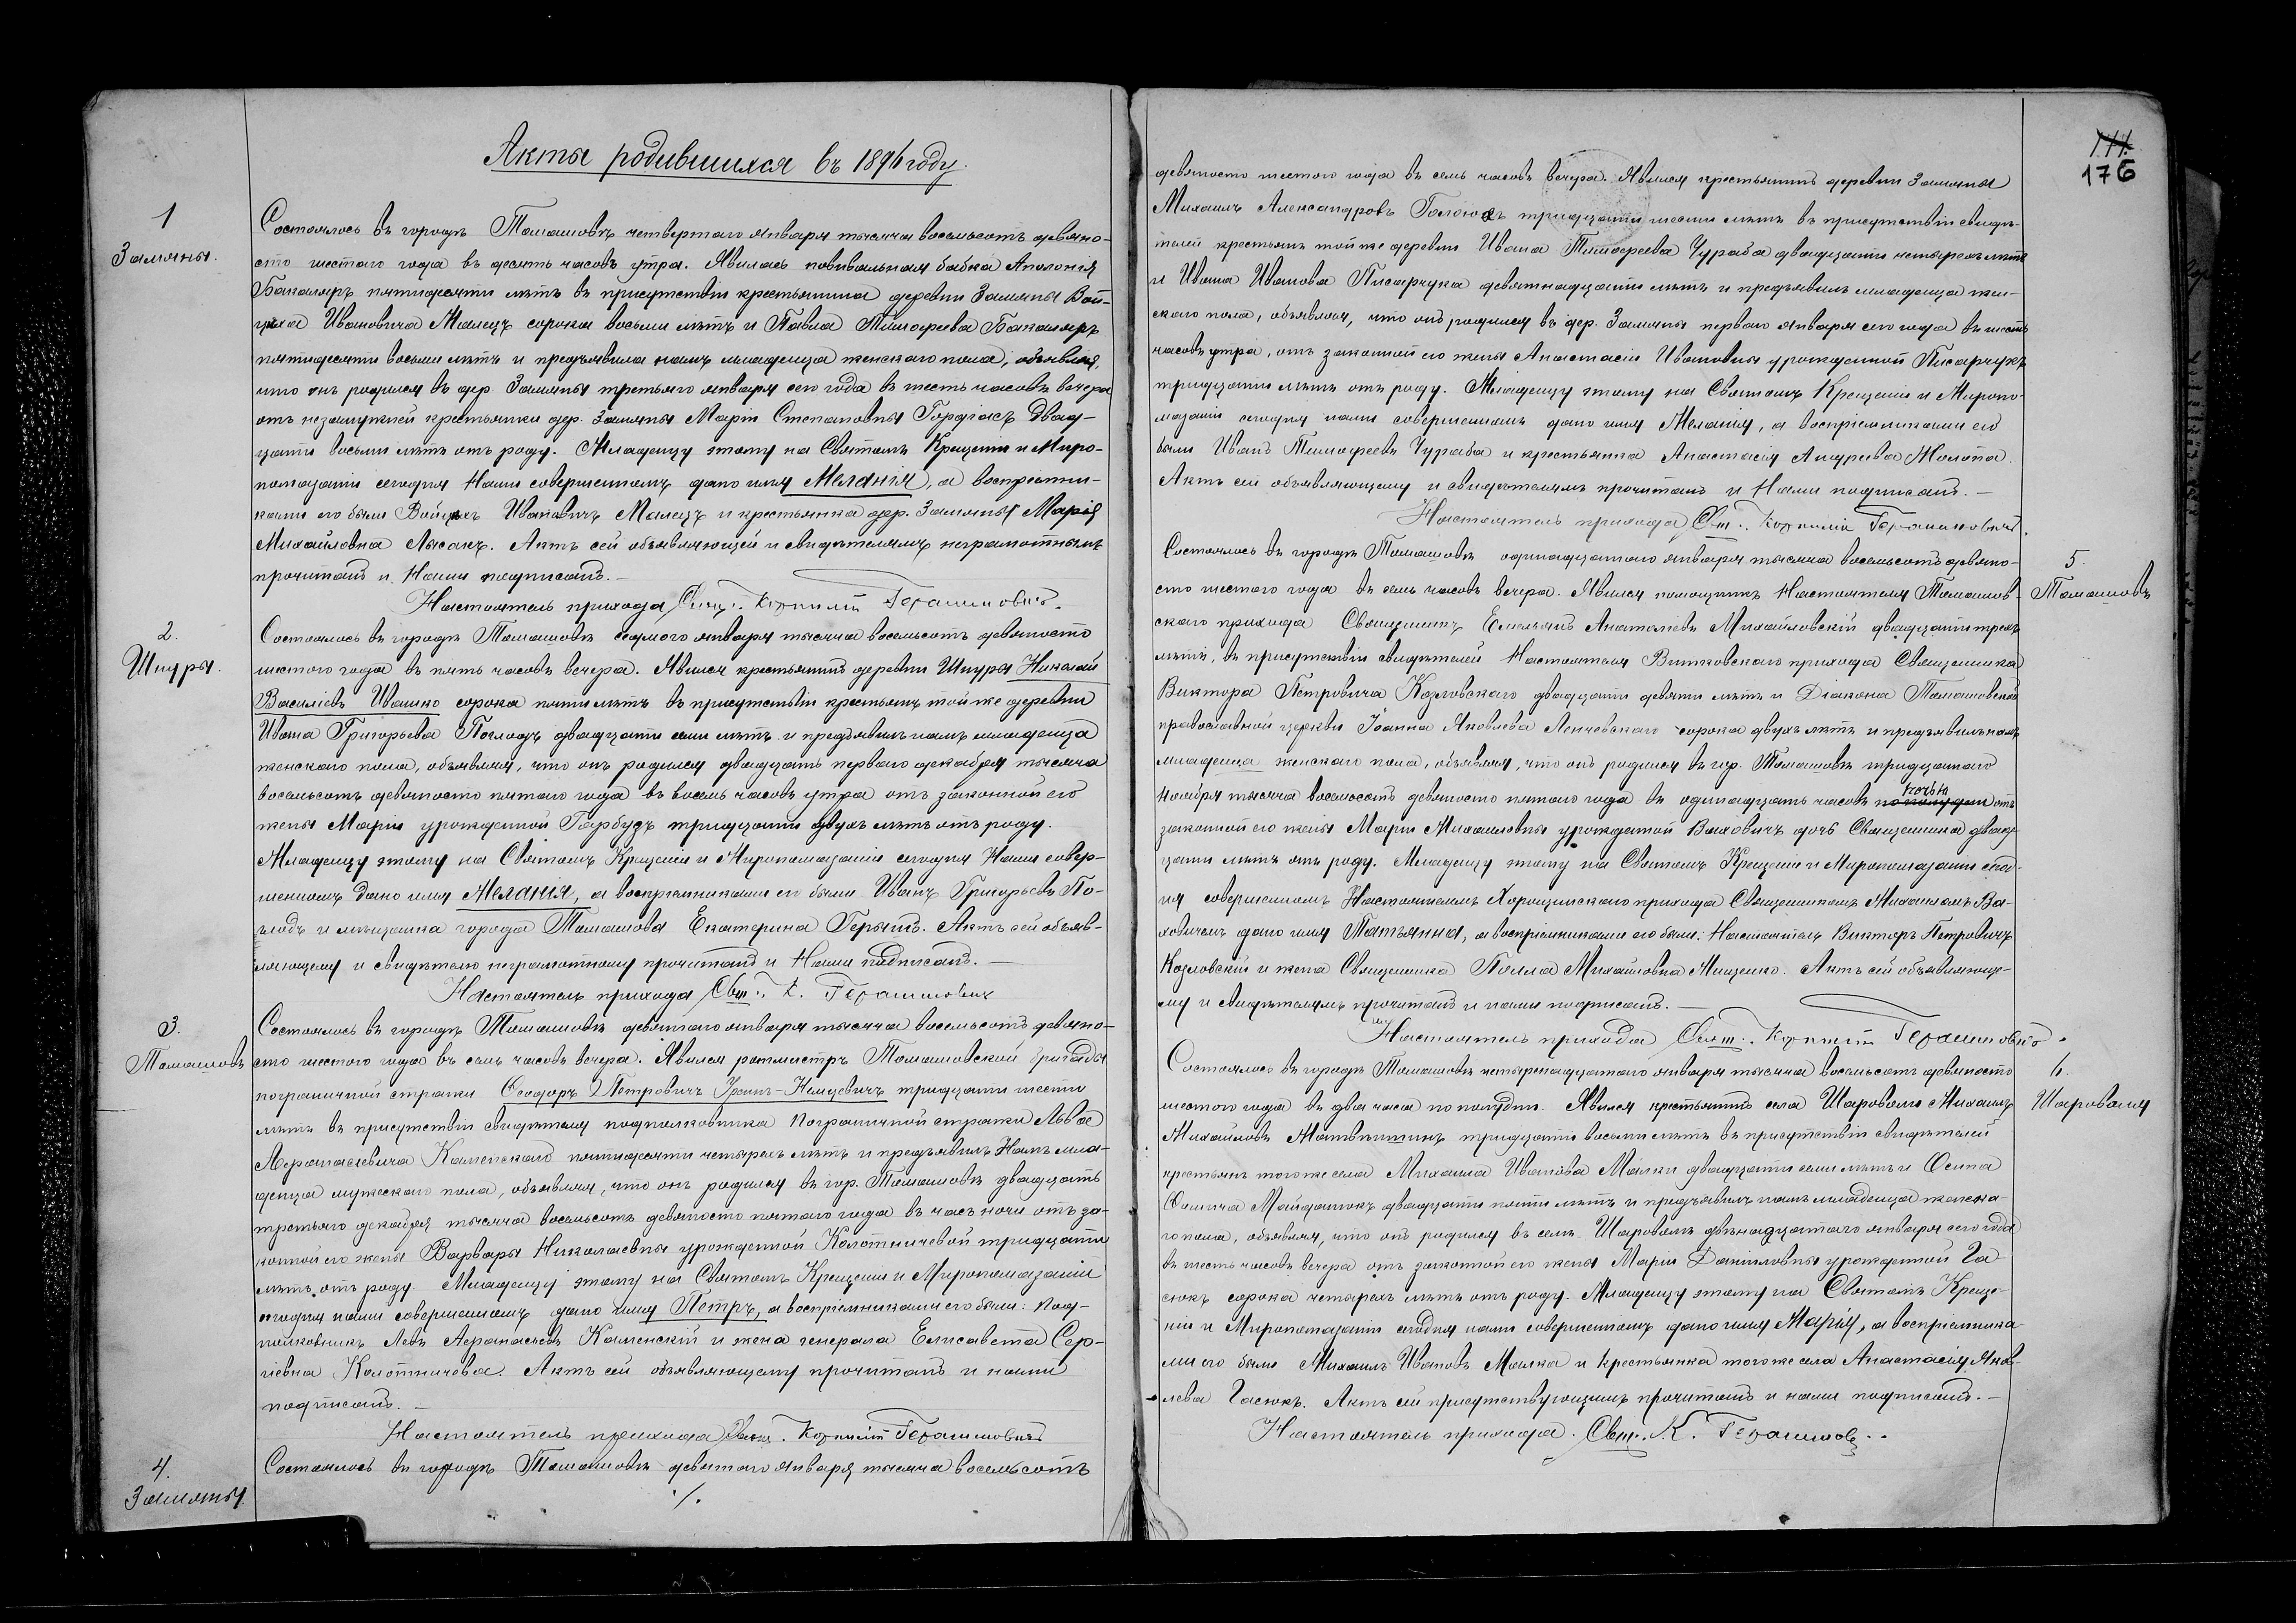 Акты родившихся въ 1896 году.
1
Замяны.
Состоялось въ городѣ Томашовѣ четвертаго января тысяча восемьсотъ девяно-
сто шестаго года въ десять часовъ утра. Явилась повивальная бабка Аполонія
Бакаляръ пятидесяти лѣтъ въ присутствіи крестьянина деревни Замяны Вой-
цеха Ивановича Малецъ сорока восьми лѣтъ и Павла Тимофеева Бакаляръ
пятидесяти восьми лѣтъ и предъявила намъ младенца женскаго пола, объявляя,
что онъ родился въ дер. Замяны третьяго января сего года въ шесть часовъ вечера
отъ незамужней крестьянки дер. Замяны Маріи Степановны Гордасъ двад-
цати восьми лѣтъ отъ роду. Младенцу этому на Святомъ Крещеніи и Миро-
помазаніи сегодня Нами совершенномъ дано имя Меланія, а воспріемни-
ками его были Войцехъ Ивановичъ Малецъ и крестьянка дер. Замяны Марія
Михайловна Лысакъ. Актъ сей объявляющей и свидѣтелямъ неграмотнымъ
прочитанъ и Нами подписанъ.
Настоятель прихода Свящ. Корнилій Герасимовичъ.
2.
Шкуры.
Состоялось въ городѣ Томашовѣ седьмого января тысяча восемьсотъ девяносто
шестого года въ пять часовъ вечера. Явился крестьянинъ деревни Шкуры Николай
Василіевъ Ивашко сорока пяти лѣтъ въ присутствіи крестьянъ той же деревни
Ивана Григорьева Поглодъ двадцати семи лѣтъ и предъявилъ намъ младенца
женскаго пола, объявляя, что онъ родился двадцать перваго декабря тысяча
восемьсотъ девяносто пятаго года въ восемь часовъ утра отъ законной его
жены Маріи урожденной Гарбузъ тридцати двухъ лѣтъ отъ роду.
Младенцу этому на Святомъ Крещеніи и Миропомазаніи сегодня Нами совер-
шенномъ дано имя Меланія, а воспріемниками его были Иванъ Григорьевъ По-
глодъ и мѣщанка города Томашова Екатерина Герынъ. Актъ сей объяв-
ляющему и свидѣтелю неграмотному прочитанъ и Нами подписанъ.
Настоятель прихода Свящ. К. Герасимовичъ
3.
Томашовъ
Состоялось въ городѣ Томашовѣ девятаго января тысяча восемьсотъ девяно-
сто шестого года въ семь часовъ вечера. Явился ротмистръ Томашовской бригады
пограничной стражи Ѳеодоръ Петровичъ Урсинъ-Немцевичъ тридцати шести
лѣтъ въ присутствіи свидѣтеля подполковника Пограничной стражи Льва
Аѳанасіевича Каменскаго пятидесяти четырехъ лѣтъ и предъявилъ Намъ мла-
денца мужескаго пола, объявляя, что онъ родился въ гор. Томашовѣ двадцать
третьяго декабря тысяча восемьсотъ девяносто пятаго года въ часъ ночи отъ за-
конной его жены Варвары Николаевны урожденной Колотничевой тридцати
лѣтъ отъ роду. Младенцу этому на Святомъ Крещеніи и Миропомазаніи
сегодня нами совершенномъ дано имя Петръ, а воспріемниками его были: Под-
полковникъ Левъ Аѳанасьевъ Каменскій и жена генерала Елисавета Сер-
гіевна Колотничева. Актъ сей объявляющему прочитанъ и нами
подписанъ.
Настоятель прихода Свящ. Корнилій Герасимовичъ
4.
Замяны.
Состоялось въ городѣ Томашовѣ девятаго января тысяча восемьсотъ
./.
176
девяносто шестого года въ семь часовъ вечера. Явился крестьянинъ деревни Замяны
Михаилъ Александровъ тридцати шести лѣтъ въ присутствіи свидѣ-
телей крестьянъ той же деревни Ивана Тимофеева Чураба двадцати четырехъ лѣтъ
и Ивана Иванова Писарчука девятнадцати лѣтъ и предъявилъ младенца жен-
скаго пола, объявляя, что онъ родился въ дер. Замяны перваго января сего года въ шесть
часовъ утра, отъ законной его жены Анастасіи Ивановны урожденной Писарчукъ
тридцати лѣтъ отъ роду. Младенцу этому на Святомъ Крещеніи и Миропо-
мазаніи сегодня нами совершенномъ дано имя Меланія, а воспріемниками его
были Иванъ Тимофеевъ Чураба и крестьянка Анастасія Андреева Молота.
Актъ сей объявляющему и свидѣтелямъ прочитанъ и Нами подписанъ.
Настоятель прихода Свящ. Корнилій Герасимовичъ.
5.
Томашовъ
Состоялось въ городѣ Томашовѣ одинадцатаго января тысяча восемьсотъ девяно-
сто шестого года въ семь часовъ вечера. Явился помощникъ Настоятеля Томашов-
скаго прихода Священникъ Емельянъ Анатоліевъ Михайловскій двадцати трехъ
лѣтъ, въ присутствіи свидѣтелей Настоятеля Витковскаго прихода Священника
Виктора Петровича Козловскаго двадцати девяти лѣтъ и Діакона Томашовской
православной церкви Іоанна Яковлева Ленчевскаго сорока двухъ лѣтъ и предъявилъ намъ
младенца женскаго пола, объявляя, что онъ родился въ гор. Томашовѣ тридцатаго
ноября тысяча восемьсотъ девяносто пятаго года въ одинадцать часовъ пополудни ночью отъ
законной его жены Маріи Михайловны урожденной Ваховичъ дочь Священника двад-
цати лѣтъ отъ роду. Младенцу этому на Святомъ Крещеніи и Миропомазаніи сегод-
ня совершенномъ Настоятелемъ Хорощинскаго прихода Священникомъ Михаиломъ Ва-
ховичемъ дано имя Татьянна, а воспріемниками его были: Настоятель Викторъ Петровичъ
Козловскій и жена Священника Михайловна Мищенко. Актъ сей объявляюще-
му и свидѣтелямъ прочитанъ и нами подписанъ.
Настоятель прихода Свящ. Корнилій Герасимовичъ.
6.
Шаровамя
Состоялось въ городѣ Томашовѣ четырнадцатаго января тысяча восемьсотъ девяносто
шестого года въ два часа по полудни. Явился крестьянинъ села Шароволи Михаилъ
Михайловъ тридцати восьми лѣтъ въ присутствіи свидѣтелей
крестьянъ того же села Михаила Иванова Малки двадцати семи лѣтъ и Осипа
Ѳомича Майданюкъ двадцати пяти лѣтъ и предъявилъ намъ младенца женска-
го пола, объявляя, что онъ родился въ селѣ Шароволи двѣнадцатаго января сего года
въ шесть часовъ вечера отъ законной его жены Маріи Даниловны урожденной Га-
сюкъ сорока четырехъ лѣтъ отъ роду. Младенцу этому на Святомъ Креще-
ніи и Миропомазаніи сегодня нами совершенномъ дано имя Марія, а воспріемника-
ми его были Михаилъ Ивановъ Малка и крестьянка того же села Анастасія Яков-
лева Гасюкъ. Актъ сей присутствующимъ прочитанъ и нами подписанъ.
Настоятель прихода. Свящ. К. Герасимов..